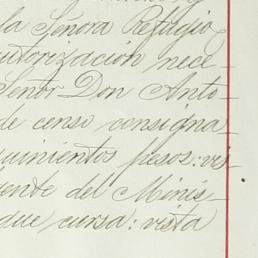 la Señora Refugio
utorización nece-
Señor Don Anto-
de censo consigna-
uinientos pesos: vis-
iente del Minis-
que cursa: vista